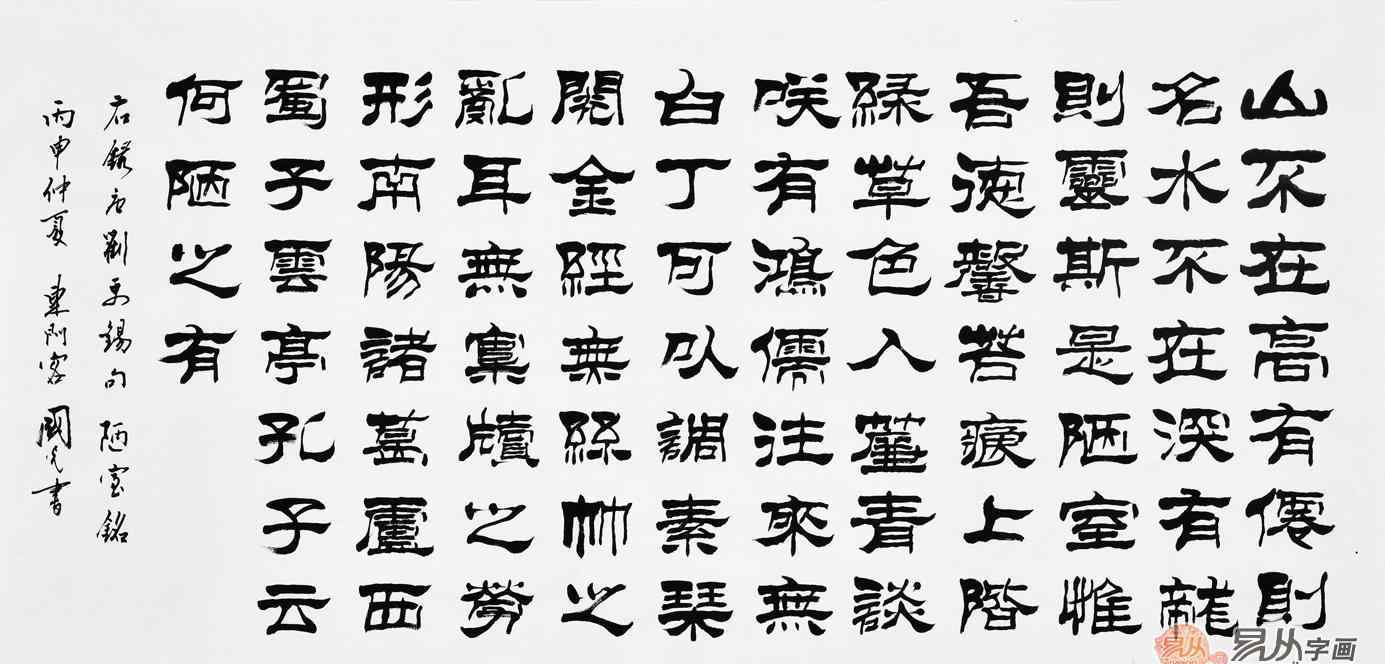 山不在高有僊則
名水不在深有龍
則靈斯是陋室惟
吾德馨苔痕上階
綠草色入簾青談
咲有鴻儒往來無
白丁可以調素琴
閱金經無絲竹之
亂耳無案牘之勞
形南陽諸葛廬西
蜀子雲亭孔子云
何陋之有
右錄唐劉禹錫句 陋室銘
丙申仲夏 東門客 國 書
易从字画